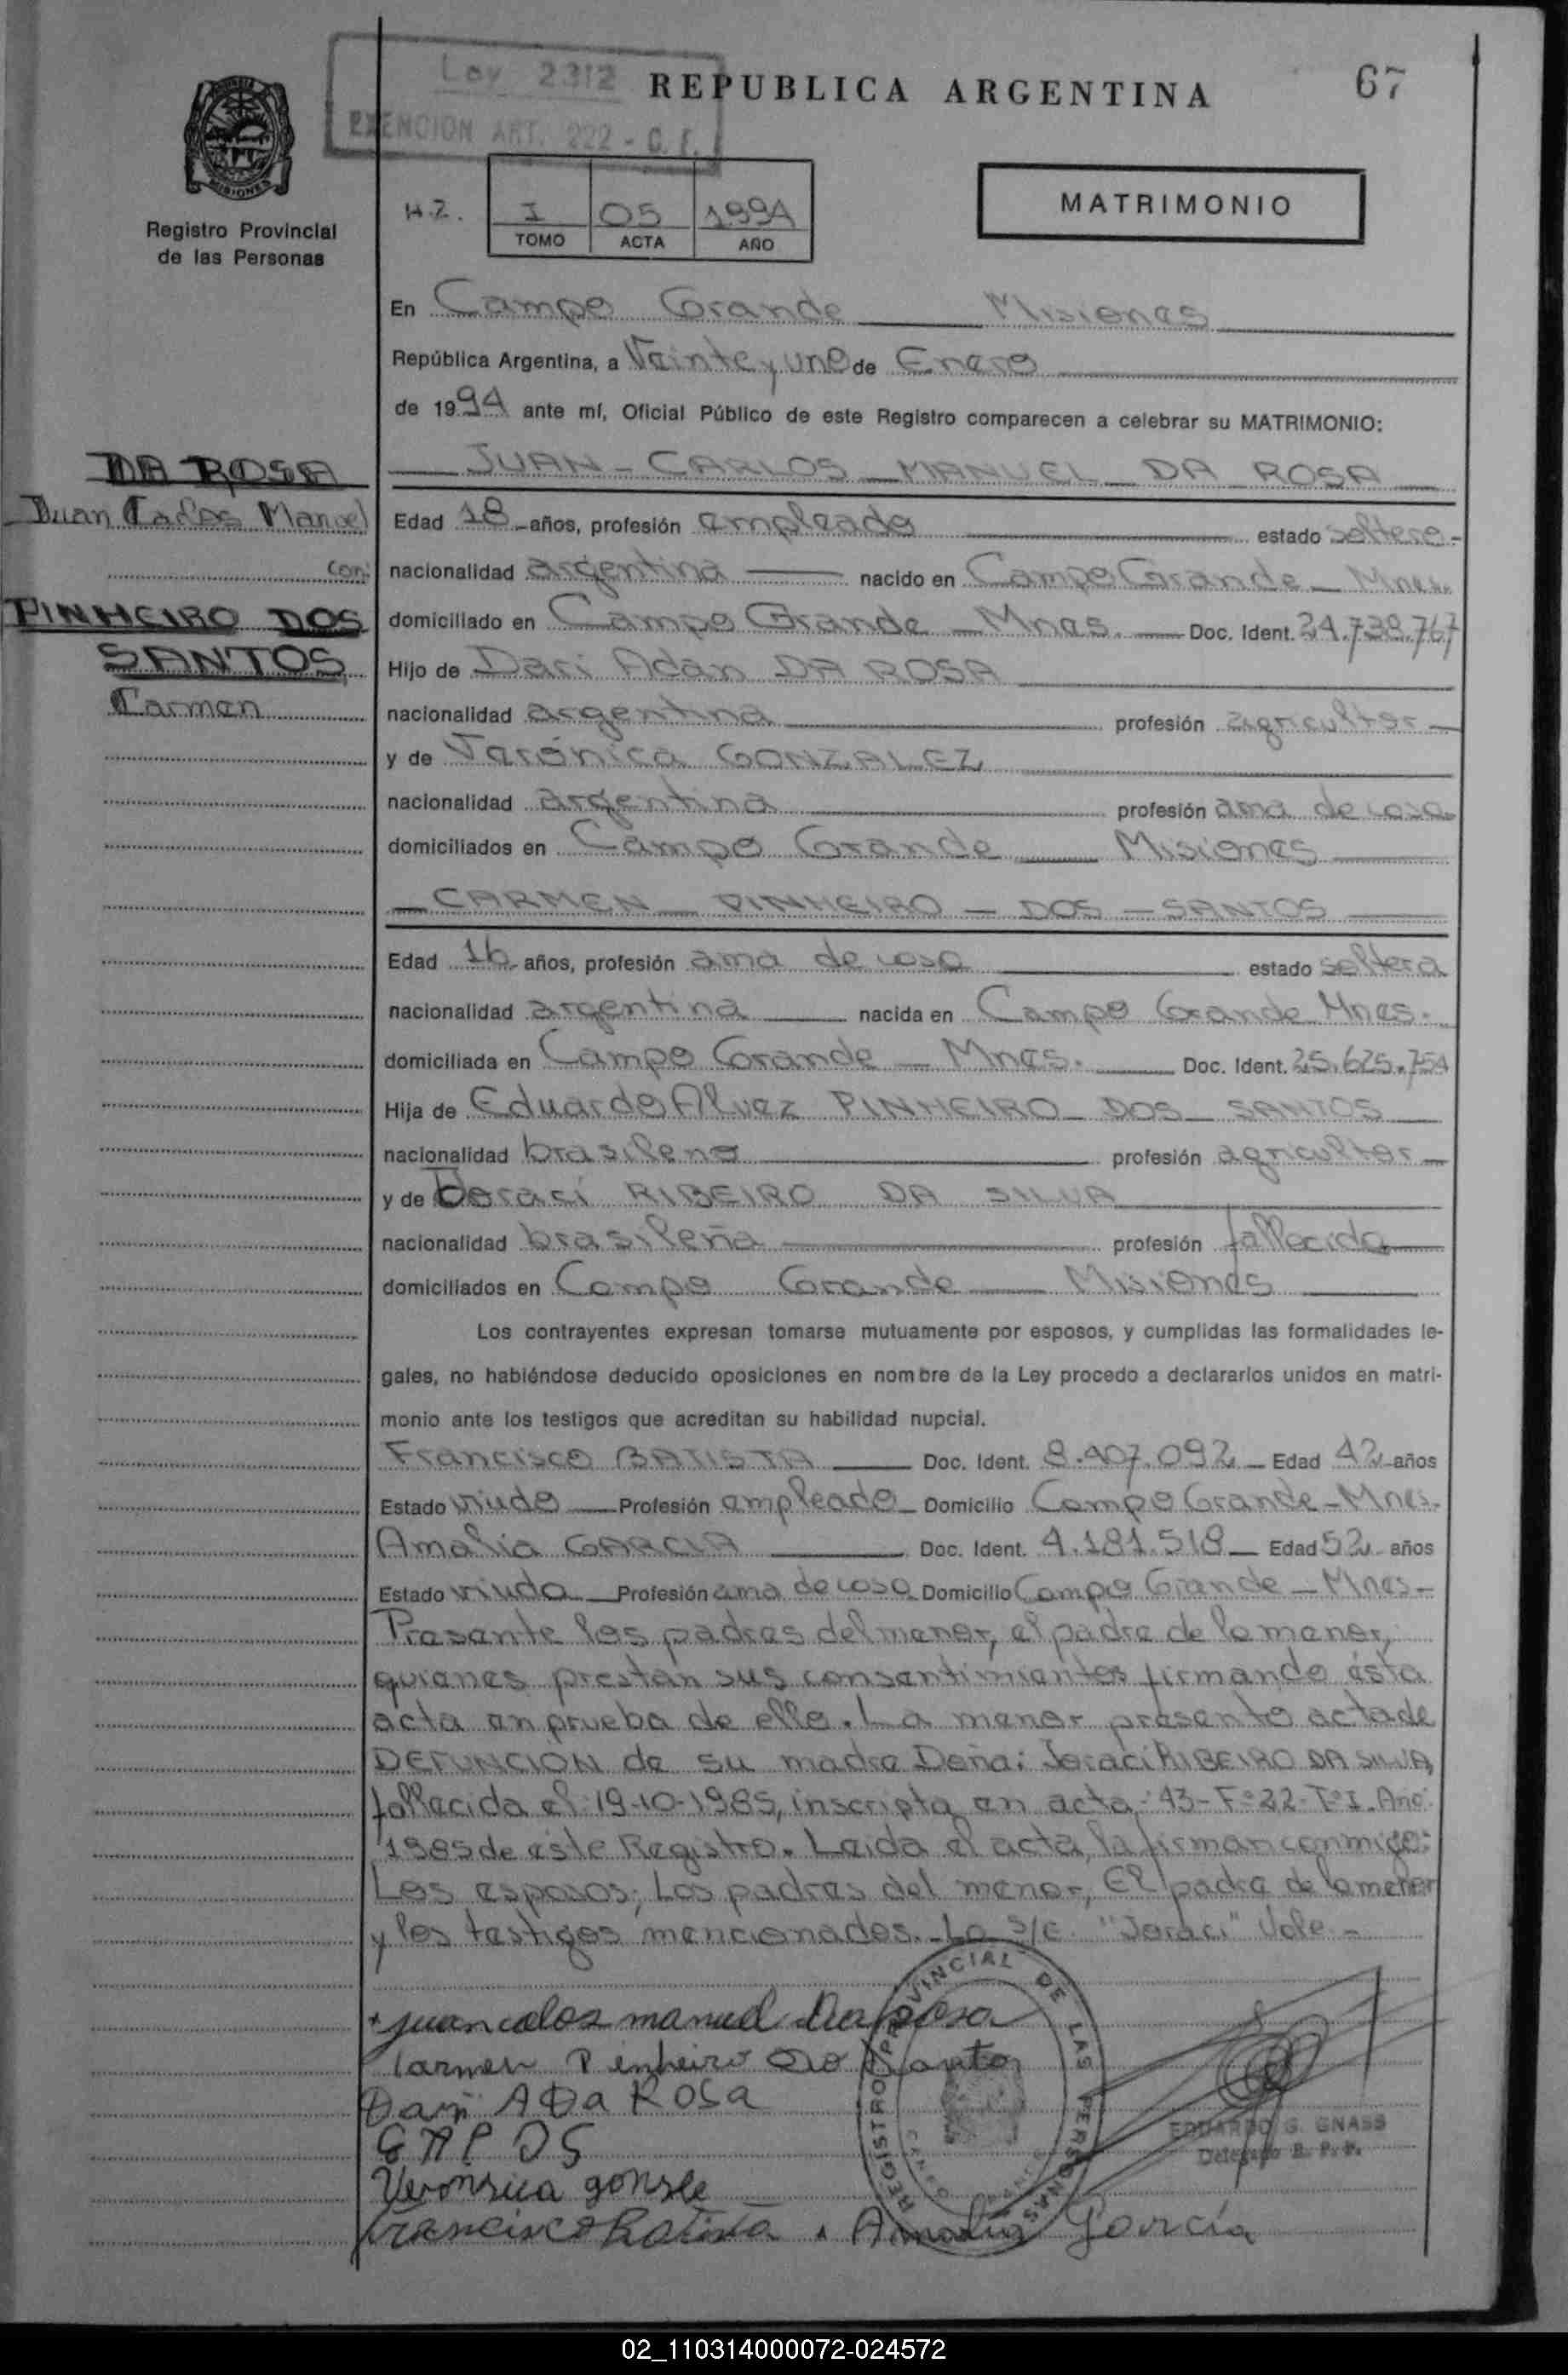 Ley 2312
EXENCION ART. 222 - C. F.
REPUBLICA ARGENTINA
67
MISIONES
Registro Provincial
de las Personas
H.2.
I
05
1994
TOMO
ACTA
AÑO
MATRIMONIO
En Campo Grande Misiones
República Argentina, a Veinte y uno de Enero
de 1994 ante mí, Oficial Público de este Registro comparecen a celebrar su MATRIMONIO:
DA ROSA
Juan Carlos Manuel
con:
PINHEIRO DOS
SANTOS
Carmen
JUAN - CARLOS - MANUEL DA ROSA
Edad 18 años, profesión empleado estado soltero -
nacionalidad argentina nacido en Campo Grande - Mnes.
domiciliado en Campo Grande - Mnes. Doc. Ident. 24.738.767
Hijo de Dari Adan DA ROSA
nacionalidad argentina profesión agricultor
y de Verónica GONZALEZ
nacionalidad argentina profesión ama de casa
domiciliados en Campo Grande Misiones
CARMEN PINHEIRO - DOS - SANTOS
Edad 16 años, profesión ama de casa estado soltera
nacionalidad argentina nacida en Campo Grande Mnes.
domiciliada en Campo Grande - Mnes. Doc. Ident. 25.625.754
Hija de Eduardo Alvez PINHEIRO DOS SANTOS
nacionalidad brasileno profesión agricultor
y de Joraci RIBEIRO DA SILVA
nacionalidad brasileña profesión fallecida
domiciliados en Campo Grande Misiones
Los contrayentes expresan tomarse mutuamente por esposos, y cumplidas las formalidades le-
gales, no habiéndose deducido oposiciones en nombre de la Ley procedo a declararlos unidos en matri-
monio ante los testigos que acreditan su habilidad nupcial.
Francisco BATISTA Doc. Ident. 8.407.092 Edad 42 años
Estado viudo Profesión empleado Domicilio Campo Grande - Mnes.
Amalia GARCIA Doc. Ident. 4.181.518 Edad 52 años
Estado viuda Profesión ama de casa Domicilio Campo Grande - Mnes -
Presente los padres del menor, el padre de la menor,
quienes prestan sus consentimientos firmando ésta
acta en prueba de ello. La menor presento acta de
DEFUNCION de su madre Doña: Joraci RIBEIRO DA SILVA,
fallecida el 19-10-1985, inscripta en acta: 43 - F° 22 - T° I. Año:
1985 de éste Registro. Leida el acta, la firman conmigo:
Los esposos; Los padres del menor, El padre de la menor
y los testigos mencionados. Lo S/E "Joraci" Vale -
Juan calos manuel Da Rosa
Carmen Pinheiro Do Santo
Dari A Da Rosa
E A P D S
Veronsica gonsle
Francisco Batista . Amalia Garcia
REGISTRO PROVINCIAL DE LAS PERSONAS
EDUARDO G. GNASS
Delegado R. P. P.
02_110314000072-024572